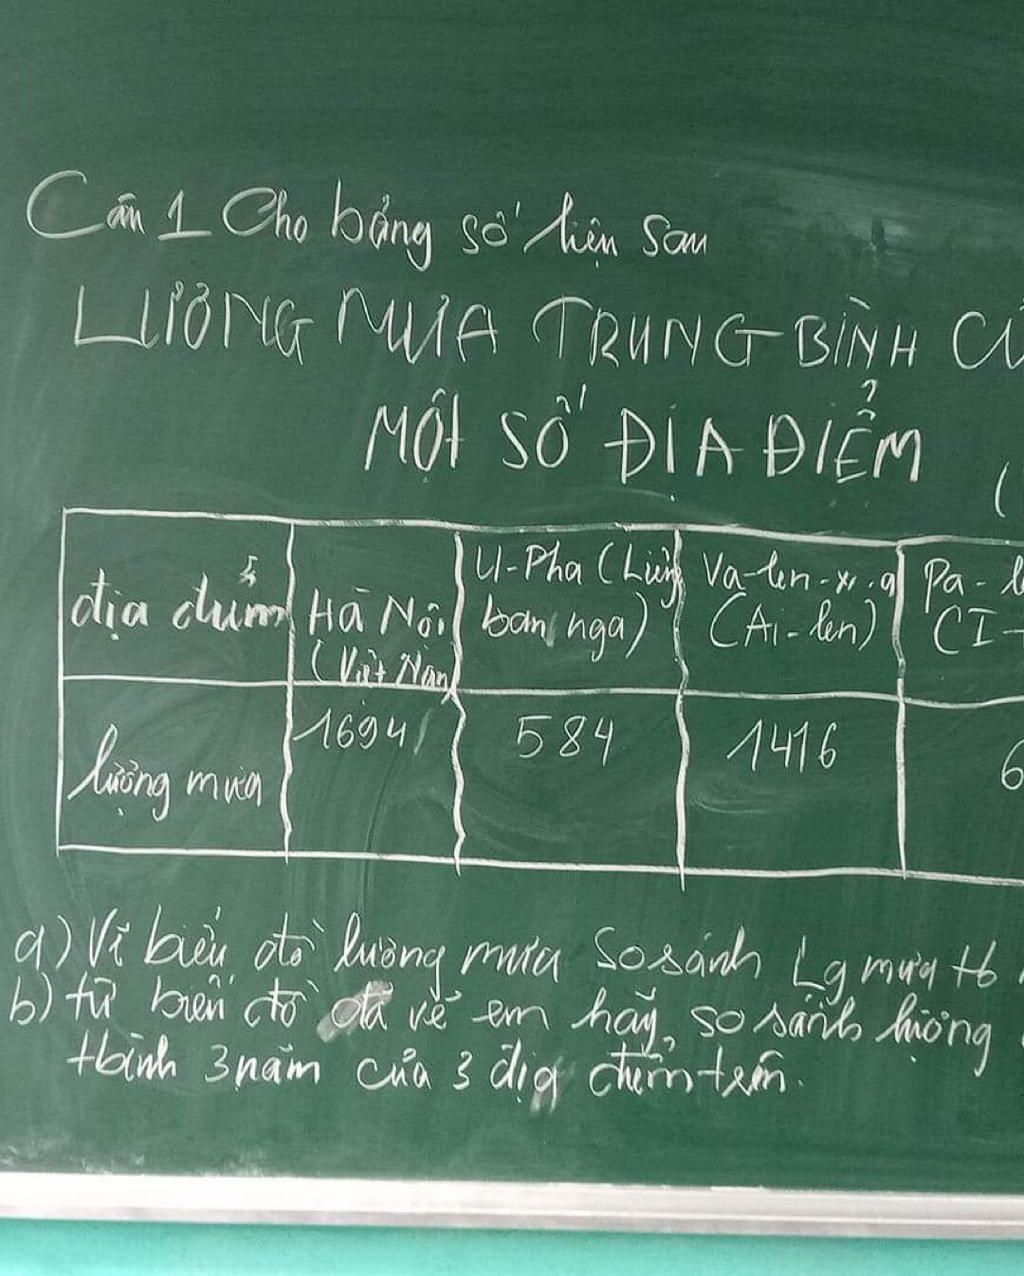 Câu 1 Cho bảng số liệu sau
LƯỢNG MƯA TRUNG BÌNH CỦ
MỘT SỐ ĐỊA ĐIỂM (
địa điểm Hà Nội (Việt Nam U-Pha (Liên ban nga) Va-len-xi-a (Ai-len) Pa-l (I-
lượng mưa 1694 584 1416 6
a) Vẽ biểu đồ lượng mưa So sánh Lg mưa tb
b) từ biểu đồ đã vẽ em hãy, so sánh lượng
tbình 3 năm của 3 địa điểm trên.